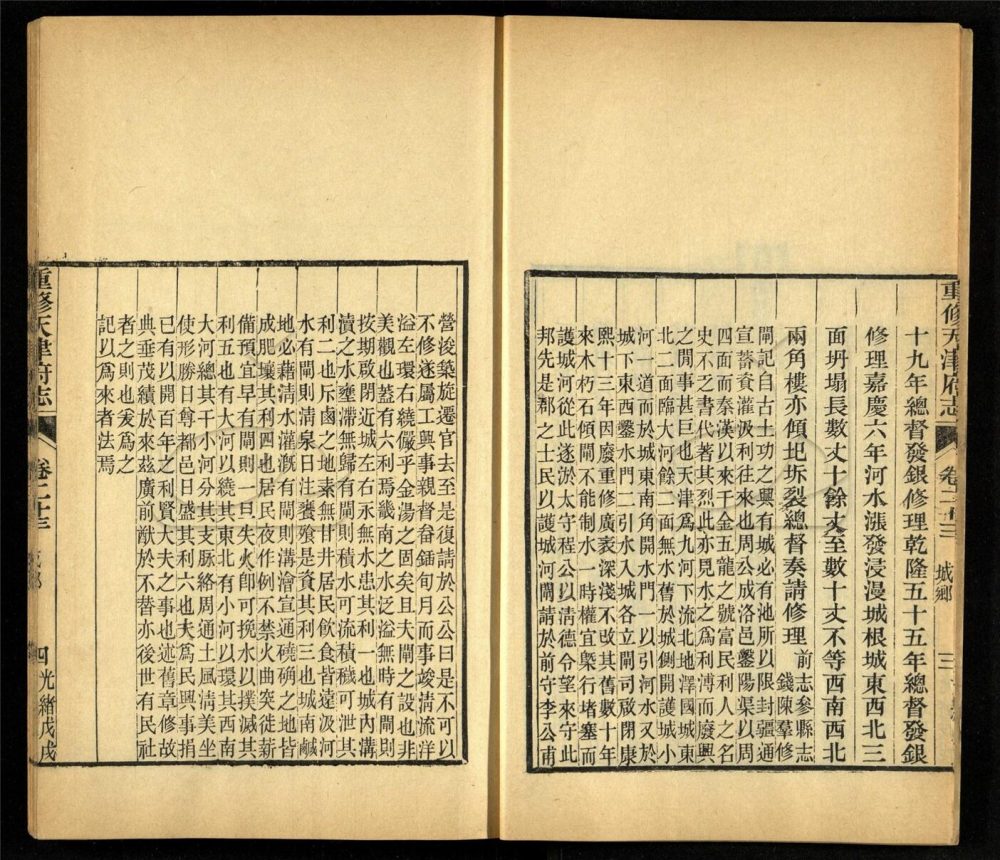 重修天津府志 卷二十三 城鄉 三
十九年總督發銀修理乾隆五十五年總督發銀
修理嘉慶六年河水漲發浸漫城根城東西北三
面坍塌長數丈十餘丈至數十丈不等西南西北
兩角樓亦傾圮坼裂總督奏請修理前志參縣志錢陳羣修
閘記自古土功之興有城必有池所以限封疆通
宣蓄資灌汲利往來也周公成洛邑鑿陽渠以周
四面而秦漢以來于金五龍之號富民利人之名
史不乏書代著其烈此亦見水之爲利溥而廢興
之閒事甚巨也天津爲九河下流北地澤國城東
北二面臨大河餘二面無水舊於城側開護城小
河一道而於城東南角開水門一以引河水又於
城下東西鑿水門二引水入城各立閘司啟閉康
熙十三年因廢重修廣袤深淺不改其舊數十年
來木朽石傾閘不能制水一時權宜槩行堵塞而
護城河從此遂淤太守程公以清德令望來守此
邦先是郡之士民以護城河閘請於前守李公甫
營浚築旋遷官去至是復請於公公曰是不可以
不修遂屬工興事親督畚鍤旬月而事竣清流洋
溢左環右繞儼乎金湯之固矣且夫閘之設也非
美觀也蓋有六利焉畿南之水泛溢無時有閘則
按期啟閉近城左右永無水患其利一也城內溝
瀆之水壅滯無歸有閘則積水可流積穢可泄其
利二也斥鹵之地素無甘井居民飲食皆遠汲河
水有閘則清泉日注饔飧是資其利三也城南鹹
地必藉清水灌溉有閘則溝澮宣通磽确之地皆
成肥壤其利四也居民夜作例不禁火曲突徙薪
備預宜早有閘則一旦失火卽可挽水以撲滅其
利五也有大河以繞其東北有小河以環其西南
大河總其干小河分其支脉絡周通土風清美坐
使形勝日尊都邑日盛其利六也夫爲民興事捐
已有以開百年之利賢大夫之事也述舊章修故
典垂茂績於來茲廣前猷於不替亦後世有民社
者之則也爰爲之
記以爲來者法焉
重修天津府志 卷二十三 城鄉 四 光緒戊戌